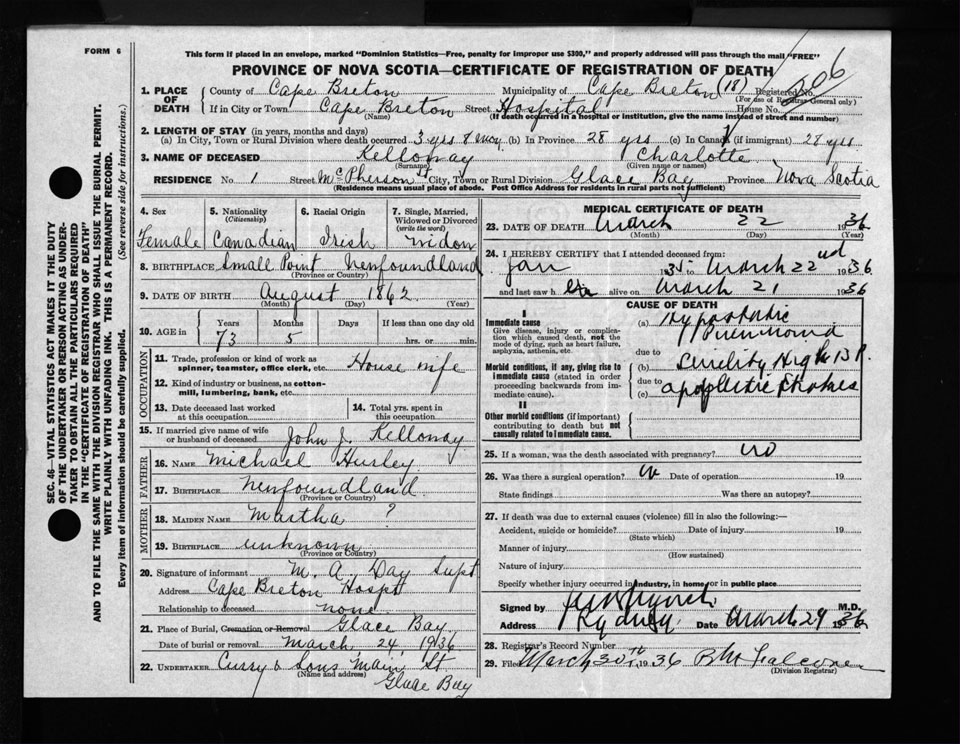 FORM 6
This form if placed in an envelope, marked "Dominion Statistics—Free, penalty for improper use $300," and properly addressed will pass through the mail "FREE"
PROVINCE OF NOVA SCOTIA—CERTIFICATE OF REGISTRATION OF DEATH
SEC. 46—VITAL STATISTICS ACT MAKES IT THE DUTY
OF THE UNDERTAKER OR PERSON ACTING AS UNDER-
TAKER TO OBTAIN ALL THE PARTICULARS REQUIRED
IN THE "CERTIFICATE OF REGISTRATION OF DEATH"
AND TO FILE THE SAME WITH THE DIVISION REGISTRAR WHO SHALL ISSUE THE BURIAL PERMIT.
WRITE PLAINLY WITH UNFADING INK. THIS IS A PERMANENT RECORD.
Every item of information should be carefully supplied. (See reverse side for instructions.)
1. PLACE OF DEATH
County of Cape Breton Municipality of Cape Breton (18) Registered No. 206
(For use of Registrar General only)
If in City or Town Cape Breton Street Hospital House No.
(Name) (If death occurred in a hospital or institution, give the name instead of street and number)
2. LENGTH OF STAY (in years, months and days)
(a) In City, Town or Rural Division where death occurred 3 yrs 8 mos (b) In Province 28 yrs (c) In Canada (if immigrant) 28 yrs
3. NAME OF DECEASED Kelloway Charlotte
(Surname) (Given name or names)
RESIDENCE No. 1 Street McPherson St City, Town or Rural Division Glace Bay Province Nova Scotia
(Residence means usual place of abode. Post Office Address for residents in rural parts not sufficient)
4. Sex 5. Nationality (Citizenship) 6. Racial Origin 7. Single, Married, Widowed or Divorced (write the word)
Female Canadian Irish widow
8. BIRTHPLACE Small Point Newfoundland
(Province or Country)
9. DATE OF BIRTH August 1862
(Month) (Day) (Year)
10. AGE in Years Months Days If less than one day old
73 5 hrs. or min.
OCCUPATION
11. Trade, profession or kind of work as spinner, teamster, office clerk, etc. House wife
12. Kind of industry or business, as cotton-mill, lumbering, bank, etc.
13. Date deceased last worked at this occupation 14. Total yrs. spent in this occupation
15. If married give name of wife or husband of deceased John J. Kelloway
FATHER
16. NAME Michael Hurley
17. BIRTHPLACE Newfoundland
(Province or Country)
MOTHER
18. MAIDEN NAME Martha ?
19. BIRTHPLACE unknown
(Province or Country)
20. Signature of informant M. A. Day Supt
Address Cape Breton Hospt
Relationship to deceased none
21. Place of Burial, Cremation or Removal Glace Bay
Date of burial or removal March, 24, 1936
22. UNDERTAKER Curry & Sons Main St
(Name and address)
Glace Bay
MEDICAL CERTIFICATE OF DEATH
23. DATE OF DEATH March 22 1936
(Month) (Day) (Year)
24. I HEREBY CERTIFY that I attended deceased from:
Jan 1935 to March 22nd 1936
and last saw her alive on March 21 1936
CAUSE OF DEATH
I
Immediate cause
Give disease, injury or complication which caused death, not the mode of dying, such as heart failure, asphyxia, asthenia, etc.
(a) Hypostatic Pneumonia
due to
Morbid conditions, if any, giving rise to immediate cause (stated in order proceeding backwards from immediate cause).
(b) Senility High B.P.
due to
(c) apoplectic Strokes
II
Other morbid conditions (if important) contributing to death but not causally related to immediate cause.
25. If a woman, was the death associated with pregnancy? no
26. Was there a surgical operation? Date of operation 19
State findings Was there an autopsy?
27. If death was due to external causes (violence) fill in also the following:—
Accident, suicide or homicide? Date of injury 19
(State which)
Manner of injury
(How sustained)
Nature of injury
Specify whether injury occurred in industry, in home, or in public place
Signed by Lynch M.D.
Address Sydney Date March 24 1936
28. Registrar's Record Number
29. Filed March 30th 1936
(Division Registrar)